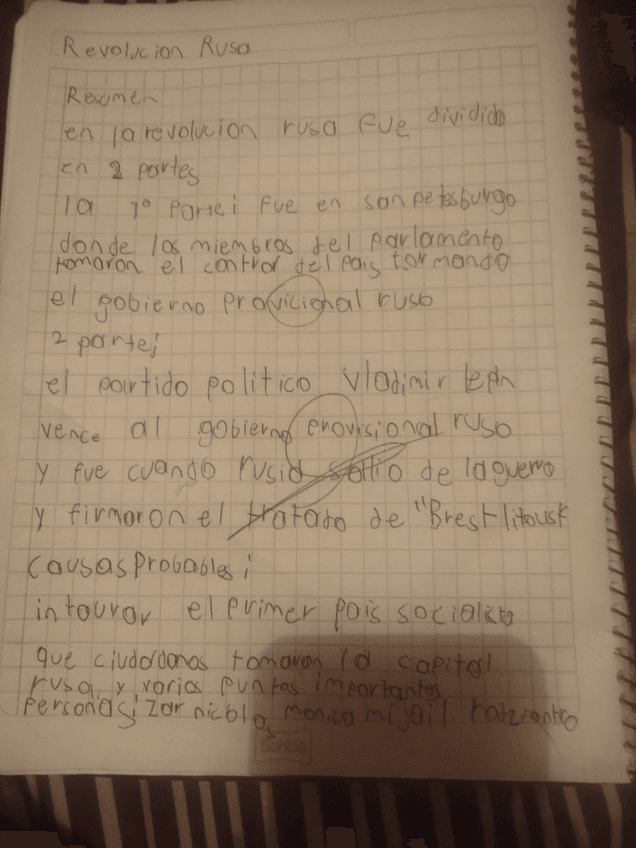 Revolucion Rusa
Resumen
en la revolucion rusa fue dividido
en 2 partes
la 1° Parte; fue en san petesburgo
donde los miembros del parlamento
tomaron el control del pais formando
el gobierno provicional ruso
2 parte;
el partido politico Vladimir
vence al gobierno provisional ruso
y fue cuando rusia salio de la guerra
y firmaron el tratado de "Brest litousk
Causas Probables;
intourar el primer pais socialista
que ciudadanos tomaron la capital
rusa, y varios puntos importantes
personas; zar nicolas
Scribe